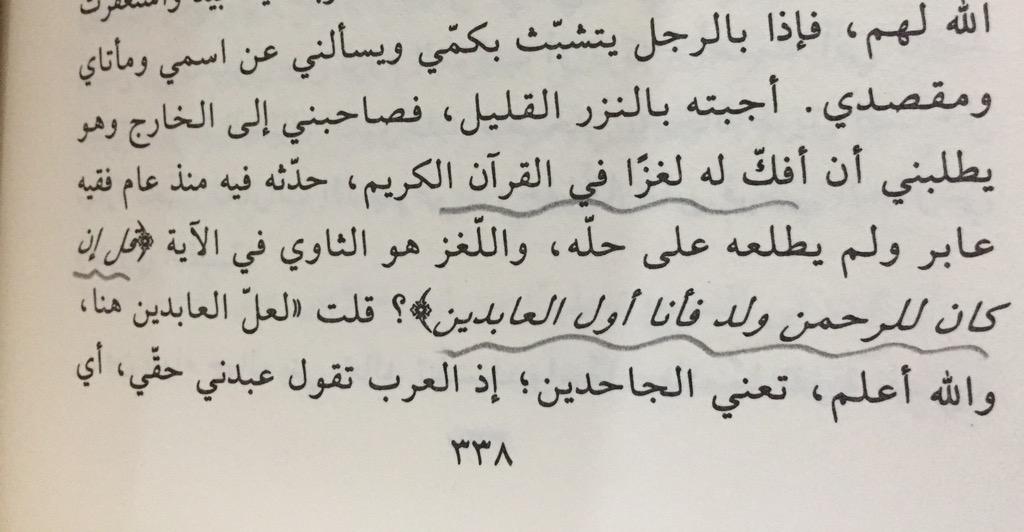 الله لهم، فإذا بالرجل يتشبّث بكمّي ويسألني عن اسمي ومأتاي
ومقصدي. أجبته بالنزر القليل، فصاحبني إلى الخارج وهو
يطلبني أن أفكّ له لغزًا في القرآن الكريم، حدّثه فيه منذ عام فقيه
عابر ولم يطلعه على حلّه، واللّغز هو الثاوي في الآية ﴿قل إن
كان للرحمن ولد فأنا أول العابدين﴾؟ قلت «لعلّ العابدين هنا،
والله أعلم، تعني الجاحدين؛ إذ العرب تقول عبدني حقّي، أي
٣٣٨